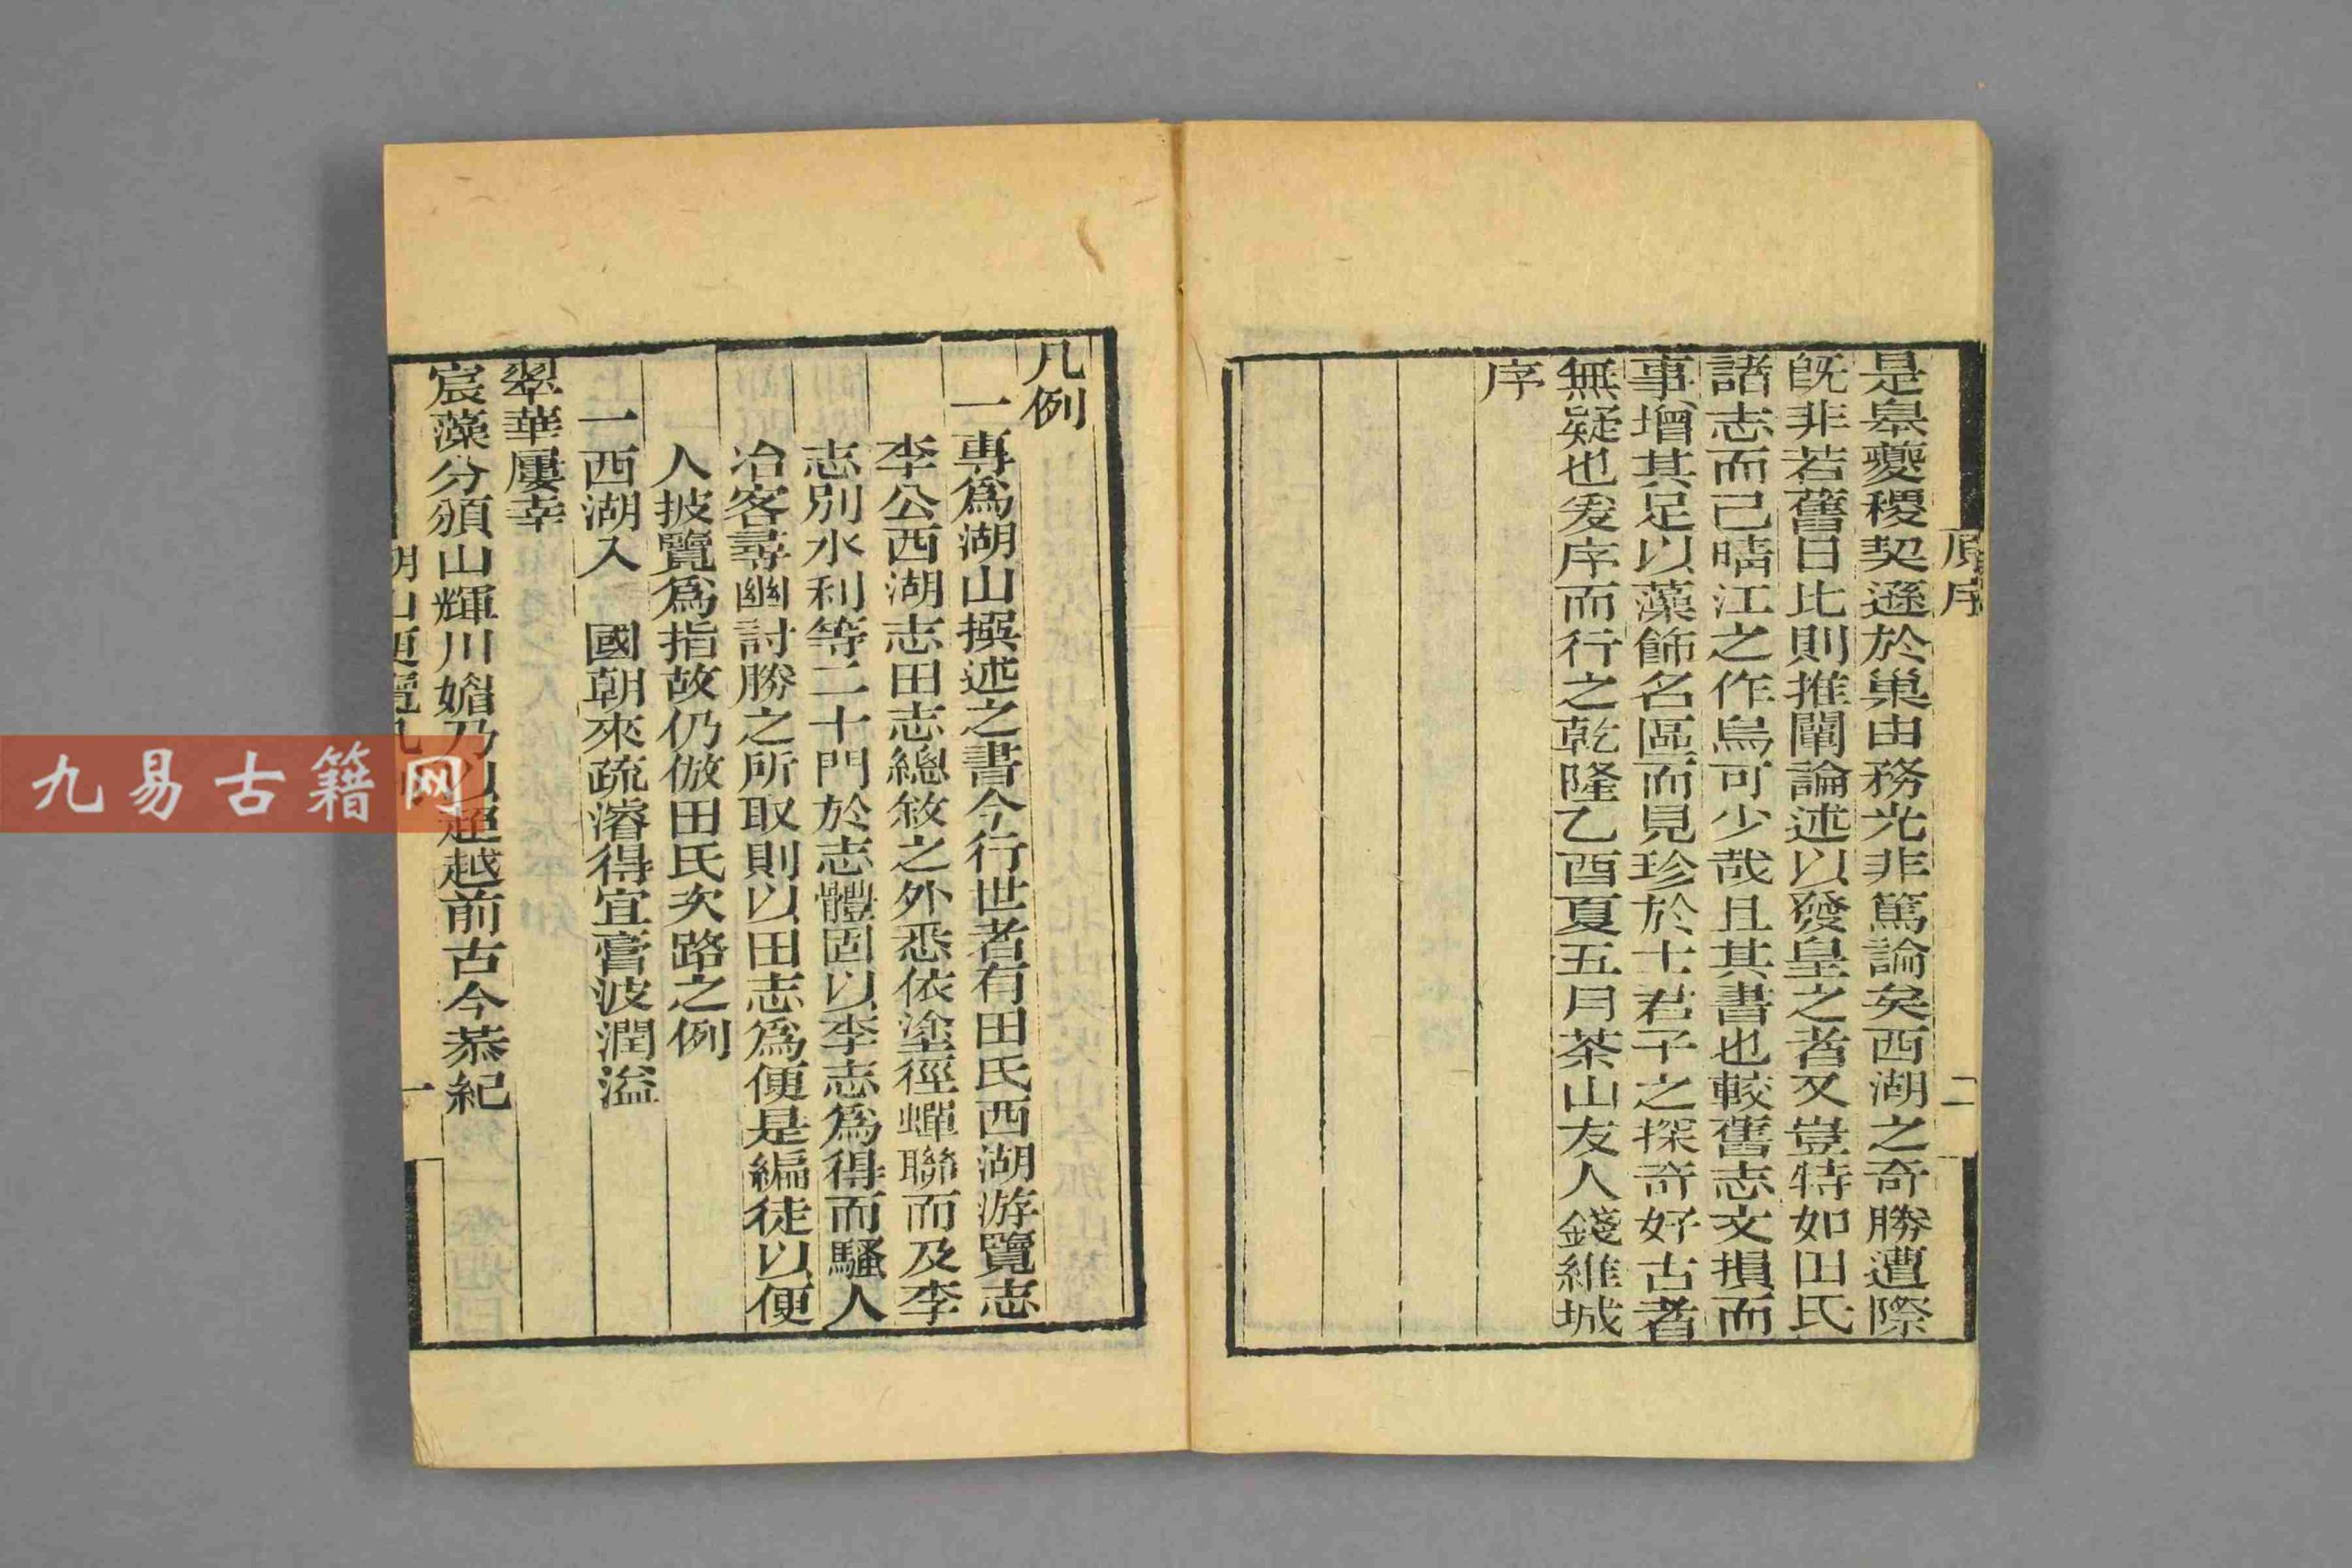 原序
二
是皋夔稷契遜於巢由務光非篤論矣西湖之奇勝遭際
旣非若舊日比則推闡論述以發皇之者又豈特如田氏
諸志而已晴江之作烏可少哉且其書也較舊志文損而
事增其足以藻飾名區而見珍於士君子之探奇好古者
無疑也爰序而行之乾隆乙酉夏五月茶山友人錢維城
序
凡例
一專爲湖山撰述之書今行世者有田氏西湖游覽志
李公西湖志田志總敘之外悉依塗徑蟬聯而及李
志別水利等二十門於志體固以李志爲得而騷人
冶客尋幽討勝之所取則以田志爲便是編徒以便
人披覽爲指故仍倣田氏次路之例
一西湖入 國朝來疏濬得宜膏波潤溢
翠華屢幸
宸藻分頒山輝川媚乃以超越前古今恭紀
湖山便覽凡
一
九易古籍网